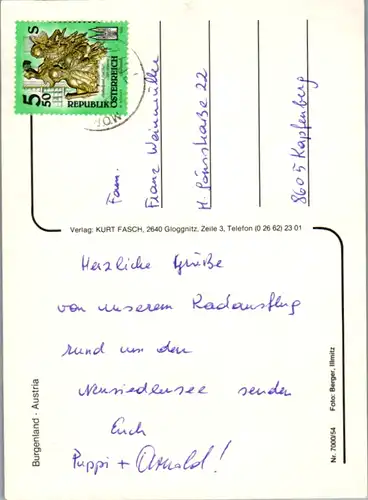 5 50 S
REPUBLIK
ÖSTERREICH
Fam.
Franz Weinmüller
H. Lönsstraße 22
8605 Kapfenberg
Verlag: KURT FASCH, 2640 Gloggnitz, Zeile 3, Telefon (0 26 62) 23 01
Herzliche Grüße
von unserem Radausflug
rund um den
Neusiedlersee senden
Euch
Puppi + Arnold!
Burgenland - Austria
Nr. 7000/54 Foto: Berger, Illmitz